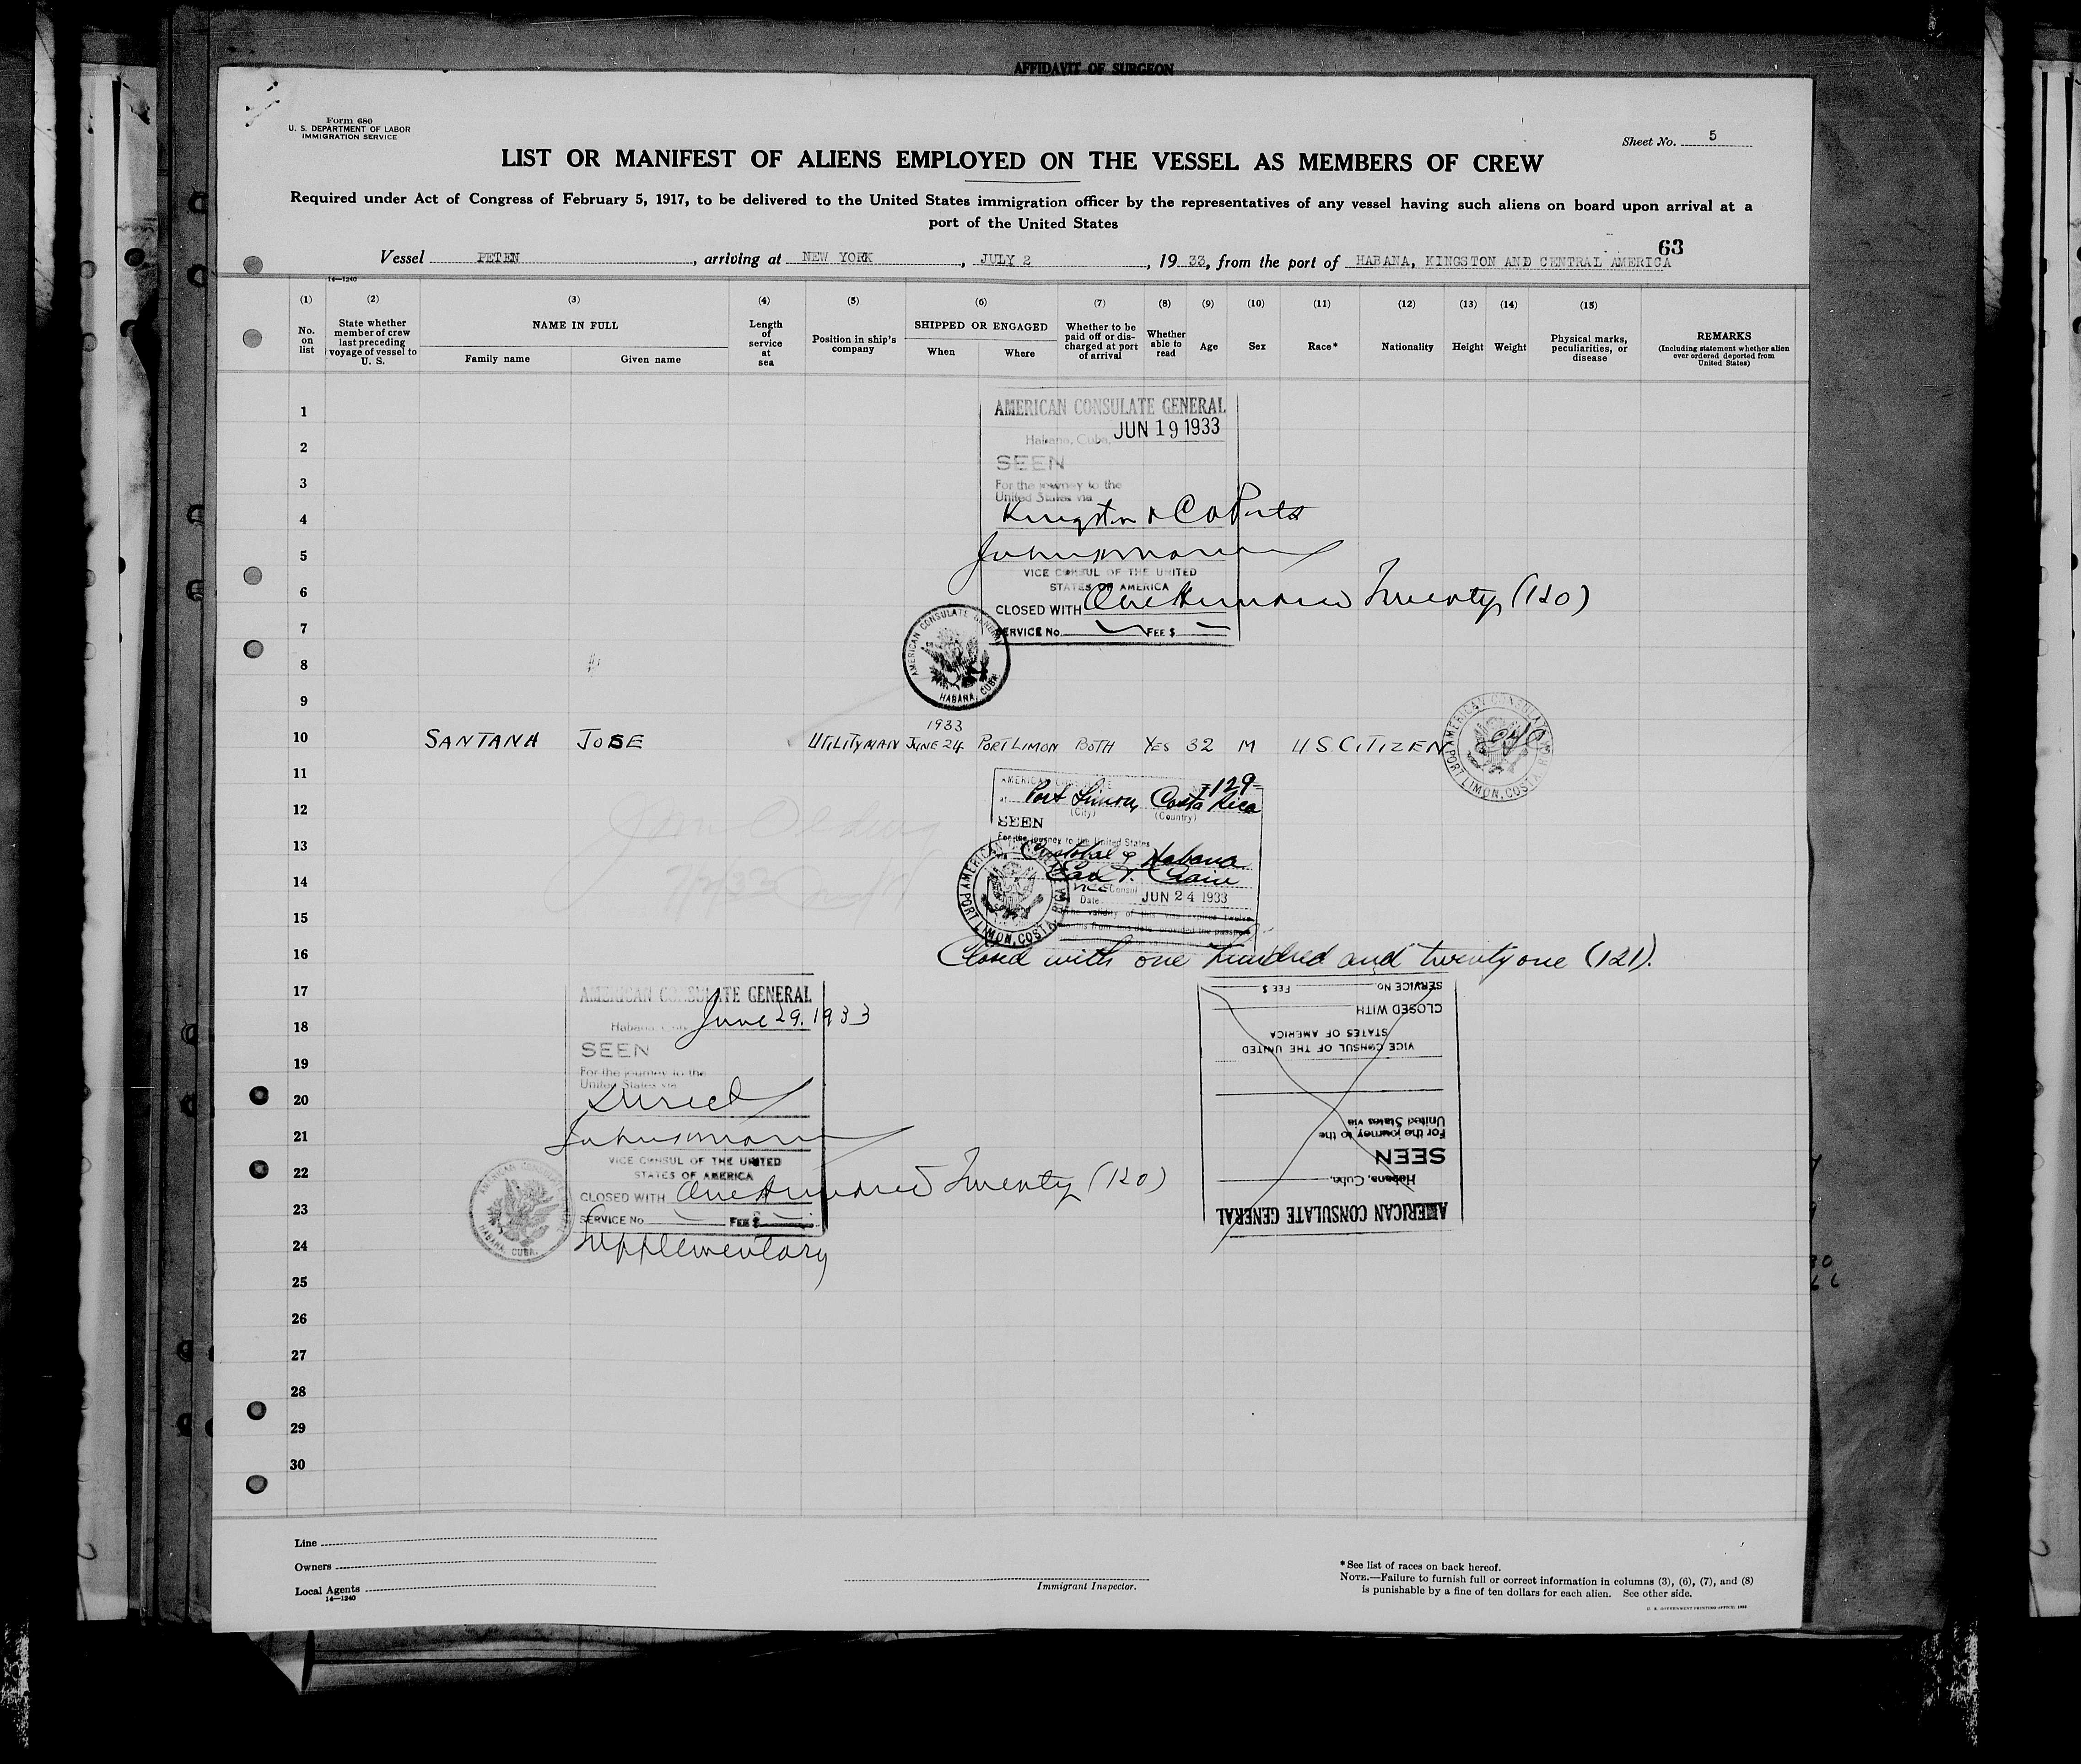 AFFIDAVIT OF SURGEON
Form 680
U. S. DEPARTMENT OF LABOR
IMMIGRATION SERVICE
Sheet No. 5
LIST OR MANIFEST OF ALIENS EMPLOYED ON THE VESSEL AS MEMBERS OF CREW
Required under Act of Congress of February 5, 1917, to be delivered to the United States immigration officer by the representatives of any vessel having such aliens on board upon arrival at a
port of the United States
63
Vessel PETEN, arriving at NEW YORK, JULY 2, 19 33, from the port of HABANA, KINGSTON AND CENTRAL AMERICA
14—1240
(1) No. on list
(2) State whether member of crew last preceding voyage of vessel to U. S.
(3) NAME IN FULL
Family name Given name
(4) Length of service at sea
(5) Position in ship's company
(6) SHIPPED OR ENGAGED
When Where
(7) Whether to be paid off or discharged at port of arrival
(8) Whether able to read
(9) Age
(10) Sex
(11) Race*
(12) Nationality
(13) Height
(14) Weight
(15) Physical marks, peculiarities, or disease
REMARKS
(Including statement whether alien ever ordered deported from United States)
1
AMERICAN CONSULATE GENERAL
Habana, Cuba, JUN 19 1933
2
SEEN
3
For the journey to the
United States via
4
Kingston & CA Ports
5
VICE CONSUL OF THE UNITED
STATES OF AMERICA
6
CLOSED WITH One Hundred Twenty (120)
7
SERVICE No. FEE $
AMERICAN CONSULATE GENERAL HABANA, CUBA
8
9
1933
10 SANTANA JOSE UTILITYMAN JUNE 24 PORT LIMON BOTH YES 32 M US CITIZEN
AMERICAN CONSULATE PORT LIMON, COSTA RICA
11
AMERICAN CONSULATE 129
at Port Limon, Costa Rica
(City) (Country)
12
SEEN
For the journey to the United States
13
via Cristobal & Habana
14
Vice Consul
Date JUN 24 1933
15
The validity of this visa expires twelve
months from this date provided the passport
AMERICAN CONSULATE PORT LIMON, COSTA RICA
16
Closed with one hundred and twenty one (121).
17
AMERICAN CONSULATE GENERAL
18
Habana, Cuba June 29, 1933
19
SEEN
For the journey to the
United States via
20
Direct
21
VICE CONSUL OF THE UNITED
22
STATES OF AMERICA
CLOSED WITH One Hundred Twenty (120)
23
SERVICE No. FEE $
24
Supplementary
AMERICAN CONSULATE GENERAL HABANA, CUBA
AMERICAN CONSULATE GENERAL
Habana, Cuba,
SEEN
For the journey to the
United States via
VICE CONSUL OF THE UNITED
STATES OF AMERICA
CLOSED WITH
SERVICE No. FEE $
25
26
27
28
29
30
Line
Owners
Local Agents
14—1240
Immigrant Inspector.
*See list of races on back hereof.
NOTE.—Failure to furnish full or correct information in columns (3), (6), (7), and (8)
is punishable by a fine of ten dollars for each alien. See other side.
U. S. GOVERNMENT PRINTING OFFICE: 1932